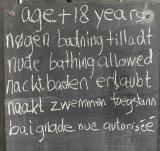 age +18 years
nøgen badning tilladt
nude bathing allowed
nacktbaden erlaubt
naakt zwemmen toegestann
baignade nue autorisée